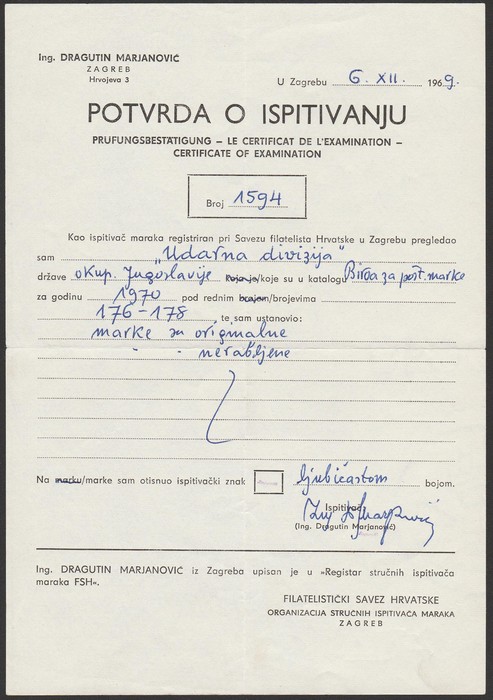 Ing. DRAGUTIN MARJANOVIĆ
ZAGREB
Hrvojeva 3
U Zagrebu 6. XII. 1969.
POTVRDA O ISPITIVANJU
PRUFUNGSBESTÄTIGUNG – LE CERTIFICAT DE L'EXAMINATION –
CERTIFICATE OF EXAMINATION
Broj 1594
Kao ispitivač maraka registriran pri Savezu filatelista Hrvatske u Zagrebu pregledao
sam „Udarna divizija"
države okup. Jugoslavije koja je/koje su u katalogu Biroa za pošt. marke
za godinu 1970 pod rednim brojem/brojevima
176-178 te sam ustanovio:
marke su originalne
" " nerabljene
Na marku/marke sam otisnuo ispitivački znak ljubičastom bojom.
Ispitivač
(Ing. Dragutin Marjanović)
Ing. DRAGUTIN MARJANOVIĆ iz Zagreba upisan je u »Registar stručnih ispitivača
maraka FSH«.
FILATELISTIČKI SAVEZ HRVATSKE
ORGANIZACIJA STRUČNIH ISPITIVAČA MARAKA
ZAGREB